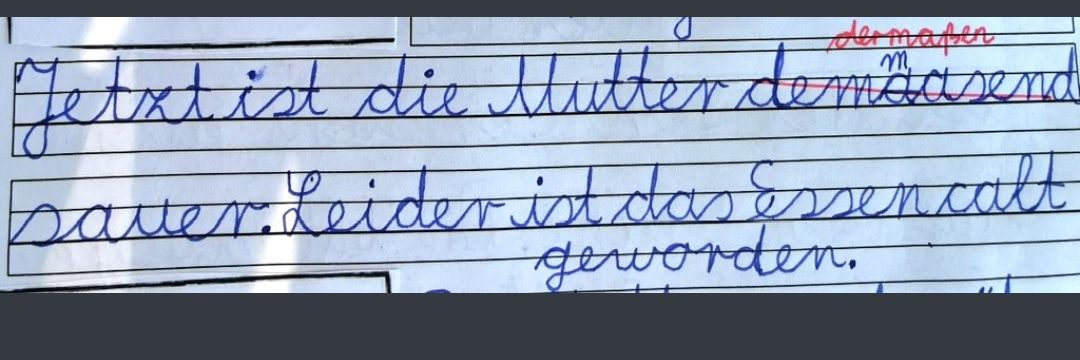 dermaßen
Jetzt ist die Mutter demmaasend
sauer. Leider ist das Essen calt
geworden.